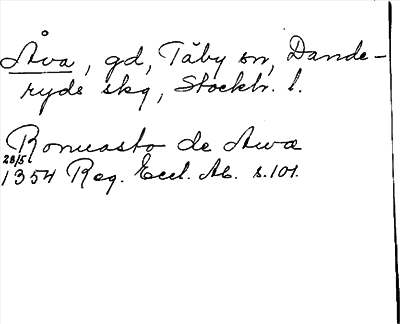 Åva, gd, Täby sn, Dande-
ryds skg, Stockh. l.
Romuasto de Awa
28/5
1354 Reg. Eccl. Ab. s. 101.